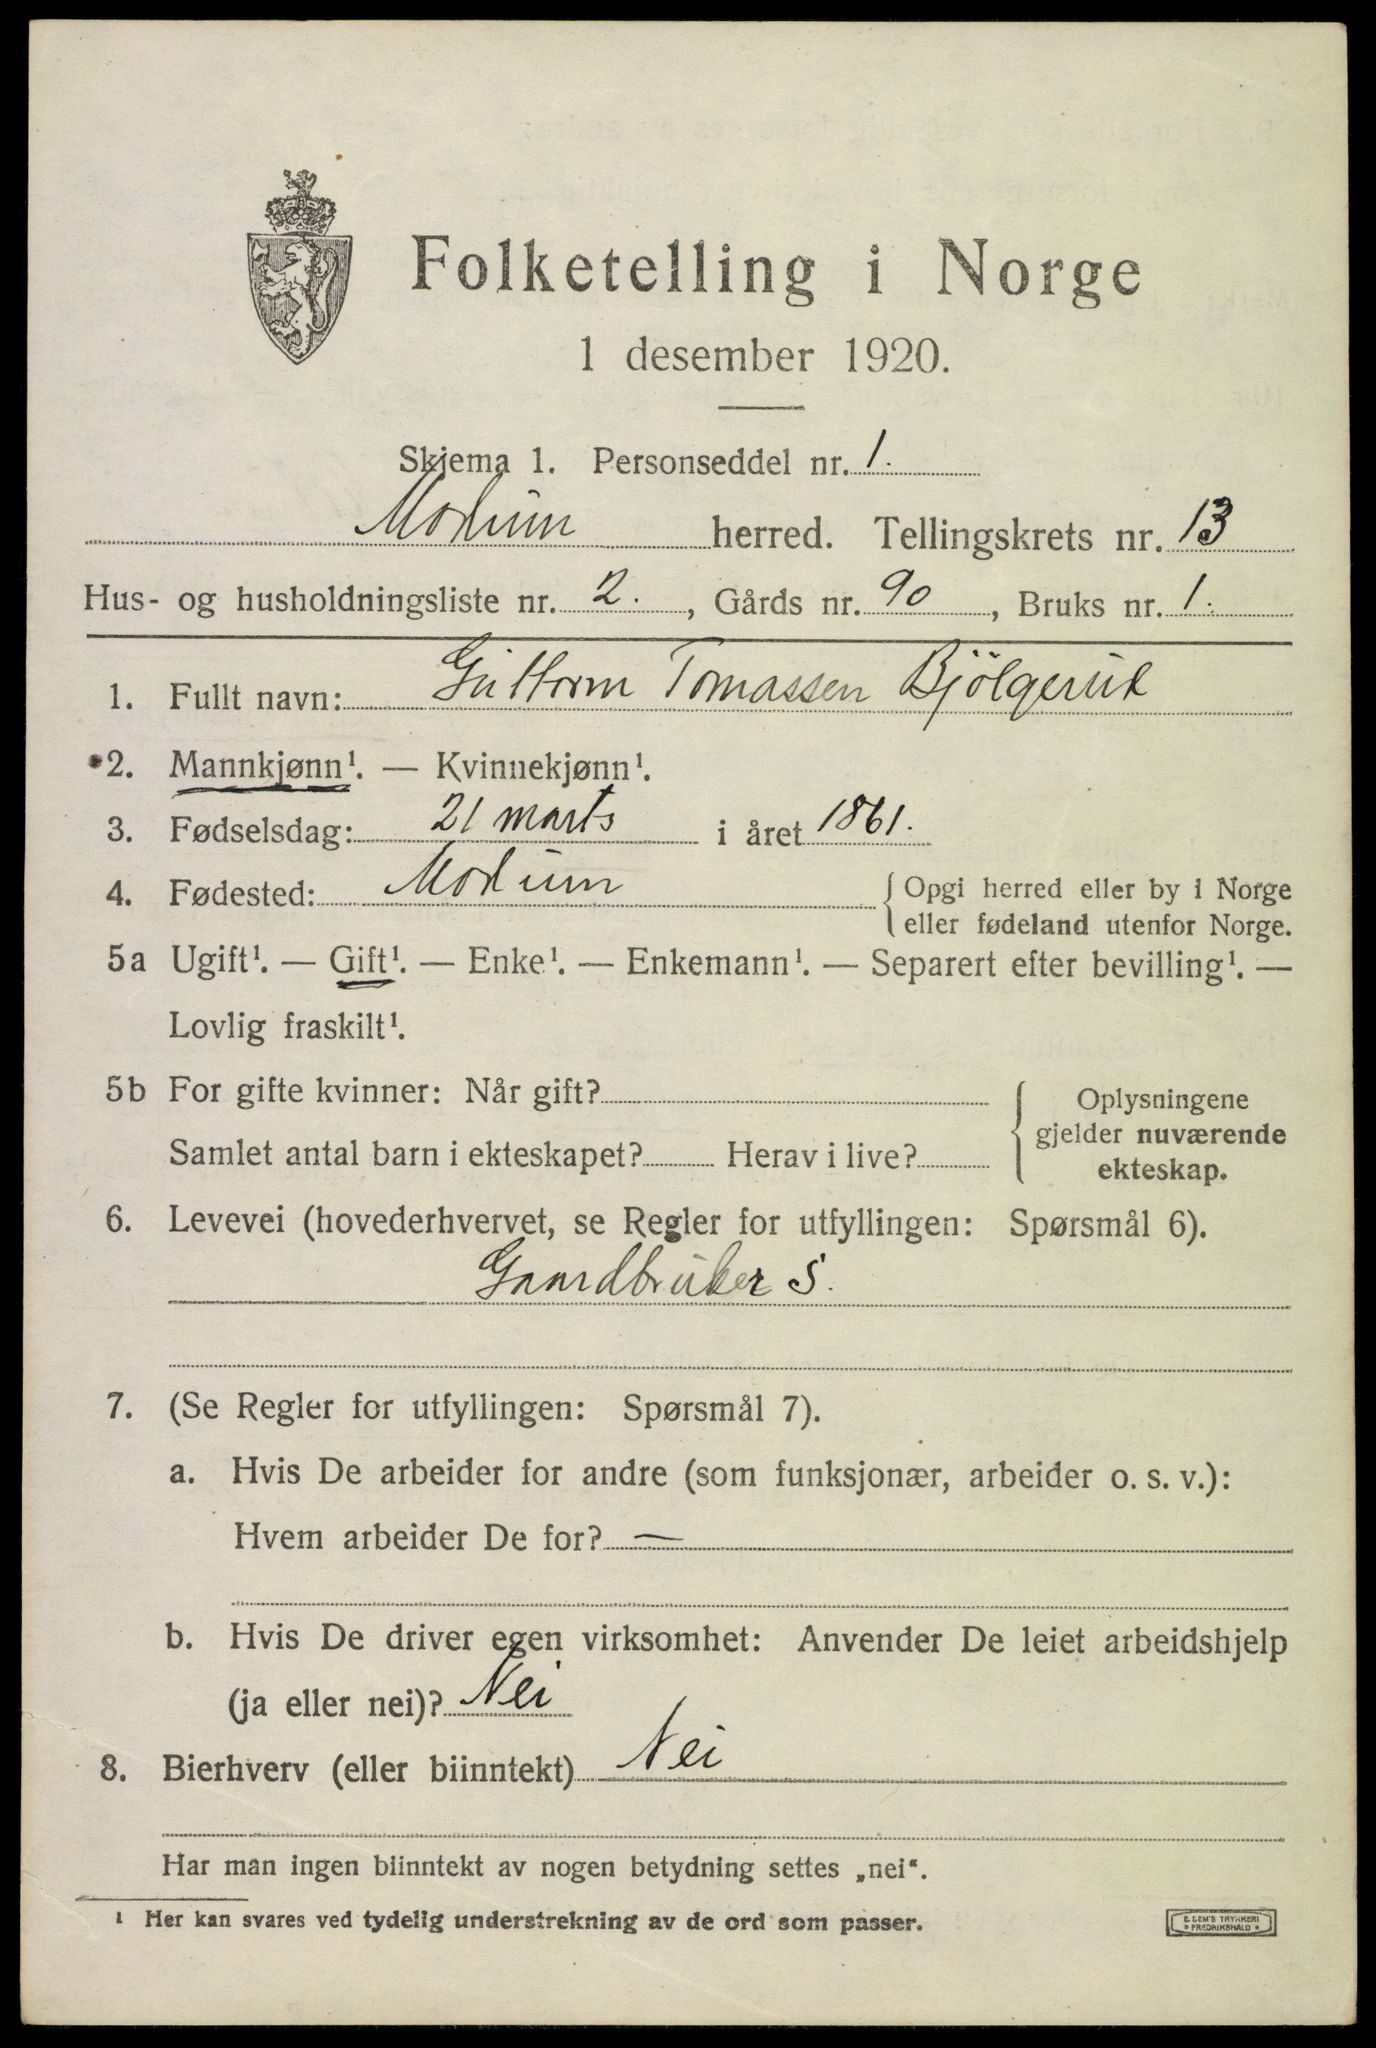 Folketelling i Norge
1 desember 1920.
Skjema 1. Personseddel nr. 1.
Modum herred. Tellingskrets nr. 13
Hus- og husholdningsliste nr. 2. , Gårds nr. 90 , Bruks nr. 1.
1. Fullt navn: Guttorm Tomassen Bjölgerud
2. Mannkjønn¹. — Kvinnekjønn¹.
3. Fødselsdag: 21 marts i året 1861.
4. Fødested: Modum { Opgi herred eller by i Norge
eller fødeland utenfor Norge.
5a Ugift¹. — Gift¹. — Enke¹. — Enkemann¹. — Separert efter bevilling¹. —
Lovlig fraskilt¹.
5b For gifte kvinner: Når gift?
Samlet antal barn i ekteskapet? Herav i live?
{ Oplysningene
gjelder nuværende
ekteskap.
6. Levevei (hovederhvervet, se Regler for utfyllingen: Spørsmål 6).
Gaardbruker S.
7. (Se Regler for utfyllingen: Spørsmål 7).
a. Hvis De arbeider for andre (som funksjonær, arbeider o. s. v.):
Hvem arbeider De for? —
b. Hvis De driver egen virksomhet: Anvender De leiet arbeidshjelp
(ja eller nei)? Nei
8. Bierhverv (eller biinntekt) Nei
Har man ingen biinntekt av nogen betydning settes „nei“.
¹ Her kan svares ved tydelig understrekning av de ord som passer.
E. SEM'S TRYKKERI
* FREDRIKSHALD *